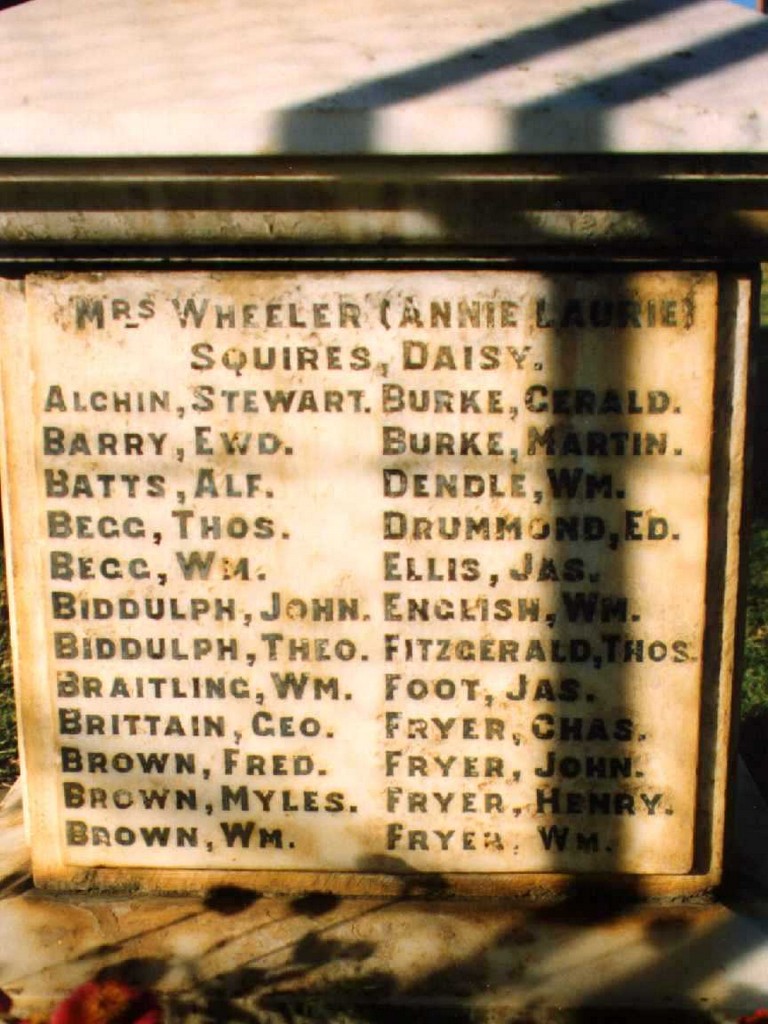 MRS WHEELER (ANNIE LAURIE)
SQUIRES, DAISY.
ALCHIN, STEWART. BURKE, GERALD.
BARRY, EWD. BURKE, MARTIN.
BATTS, ALF. DENDLE, WM.
BEGG, THOS. DRUMMOND, ED.
BEGG, WM. ELLIS, JAS.
BIDDULPH, JOHN. ENGLISH, WM.
BIDDULPH, THEO. FITZGERALD, THOS.
BRAITLING, WM. FOOT, JAS.
BRITTAIN, GEO. FRYER, CHAS.
BROWN, FRED. FRYER, JOHN.
BROWN, MYLES. FRYER, HENRY.
BROWN, WM. FRYER, WM.